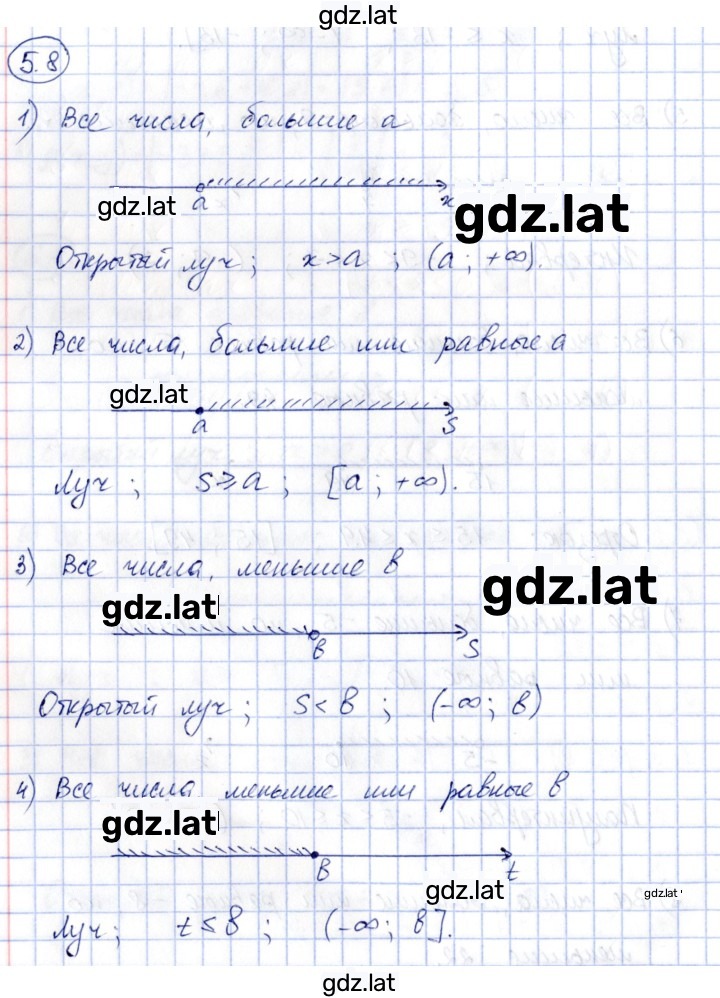 gdz.lat
5.8
1) Все числа, большие a
a x
gdz.lat
gdz.lat
Открытый луч; x>a; (a; +∞).
2) Все числа, большие или равные a
gdz.lat
a s
Луч; s⩾a; [a; +∞).
3) Все числа, меньшие b
gdz.lat
gdz.lat
b s
Открытый луч; s<b; (-∞; b)
4) Все числа меньшие или равные b
gdz.lat
b t
gdz.lat
gdz.lat
Луч; t≤b; (-∞; b].
gdz.lat